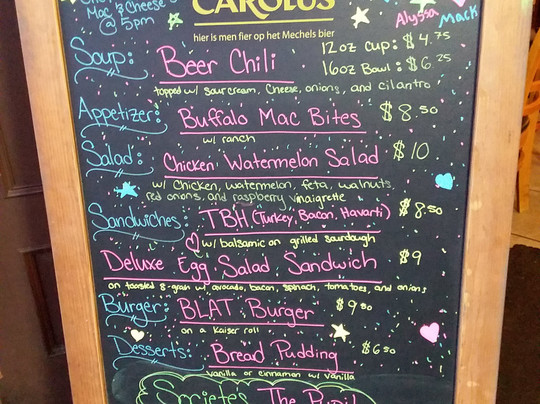 Mac & Cheese
@ 5pm
CAROLUS
hier is men fier op het Mechels bier
Alyssa Mack
Soup: Beer Chili 12oz cup: $4.75
16oz Bowl: $6.25
topped w/ sour cream, cheese, onions, and cilantro
Appetizer: Buffalo Mac Bites $8.50
w/ ranch
Salad: Chicken Watermelon Salad $10
w/ Chicken, watermelon, feta, walnuts,
red onions, and raspberry vinaigrette
Sandwiches: TBH (Turkey, Bacon, Havarti) $8.50
w/ balsamic on grilled sourdough
Deluxe Egg Salad Sandwich $9
on toasted 8-grain w/ avocado, bacon, spinach, tomatoes, and onions
Burger: BLAT Burger $9.50
on a Kaiser roll
Desserts: Bread Pudding $6.50
vanilla or cinnamon w/ vanilla
The